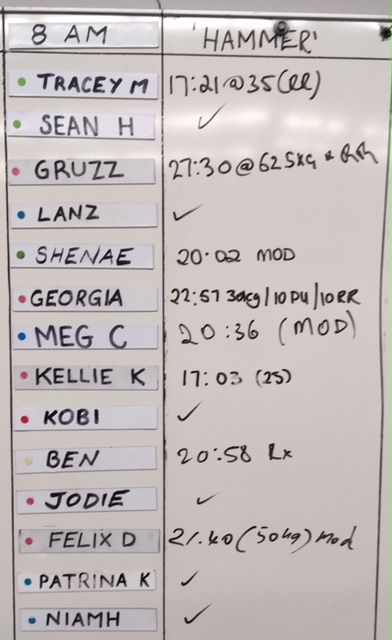 8 AM 'HAMMER'
TRACEY M 17:21@35(RR)
SEAN H ✓
GRUZZ 27:30@62.5KG * RR
LANZ ✓
SHENAE 20:02 MOD
GEORGIA 22:57 30kg/10PU/10RR
MEG C 20:36 (MOD)
KELLIE K 17:03 (25)
KOBI ✓
BEN 20:58 Rx
JODIE ✓
FELIX D 21.40 (50kg) Mod
PATRINA K ✓
NIAMH ✓